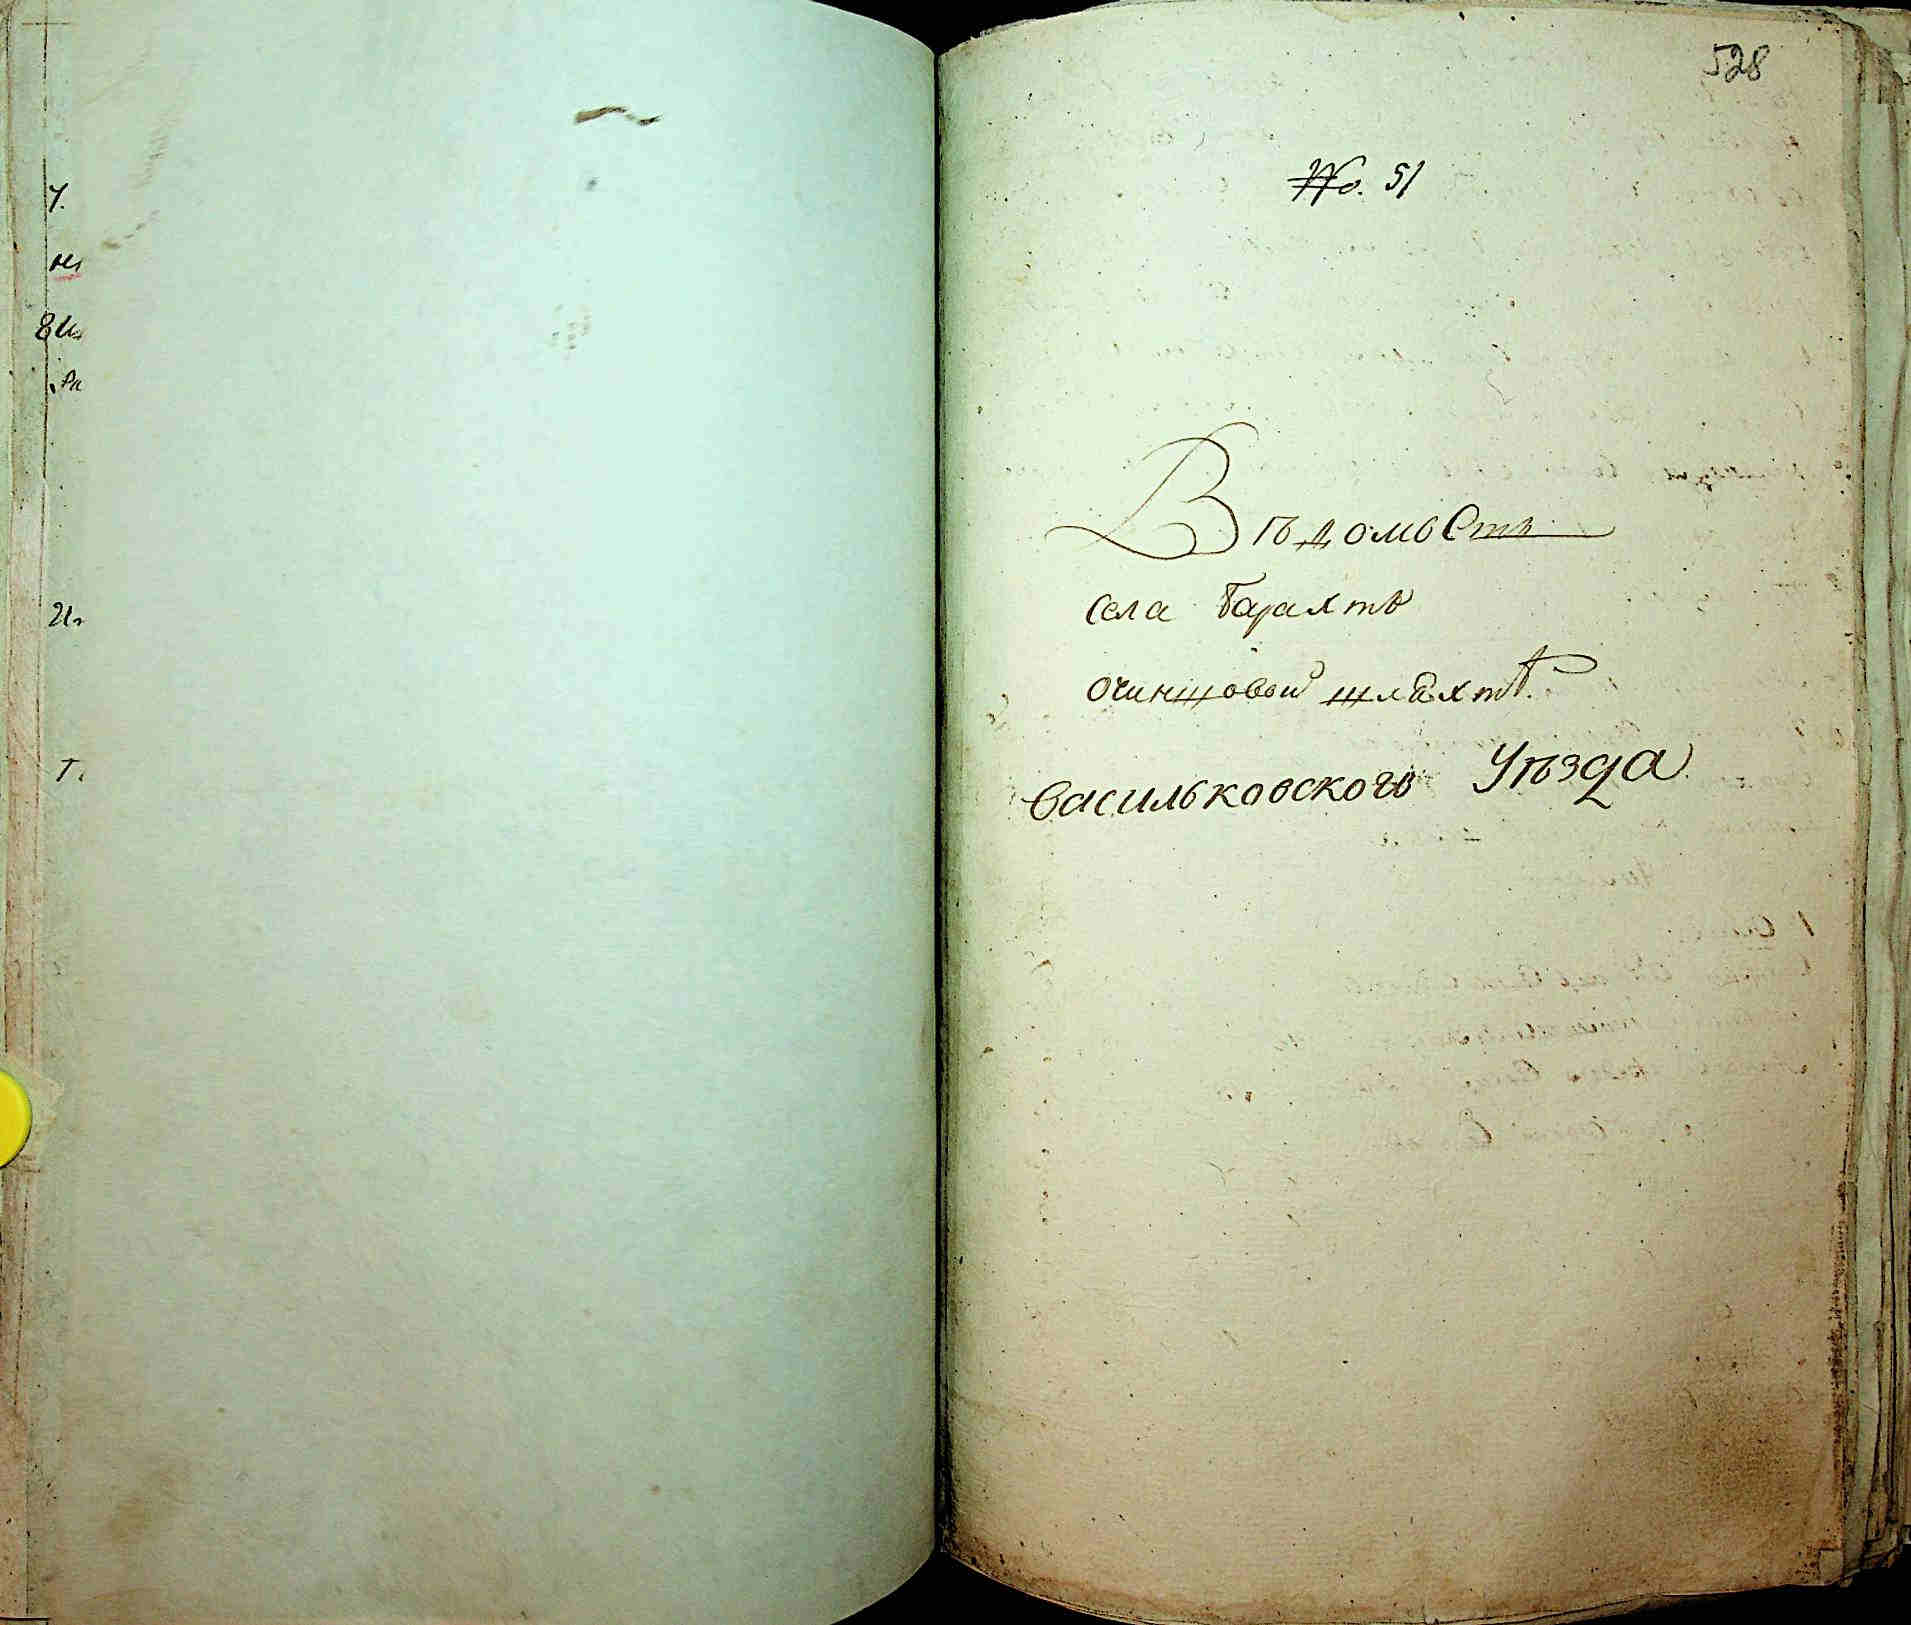 528
No. 51
Вѣдомость
села Барахтъ
очиншовой шляхтѣ.
Васильковского Уѣзда